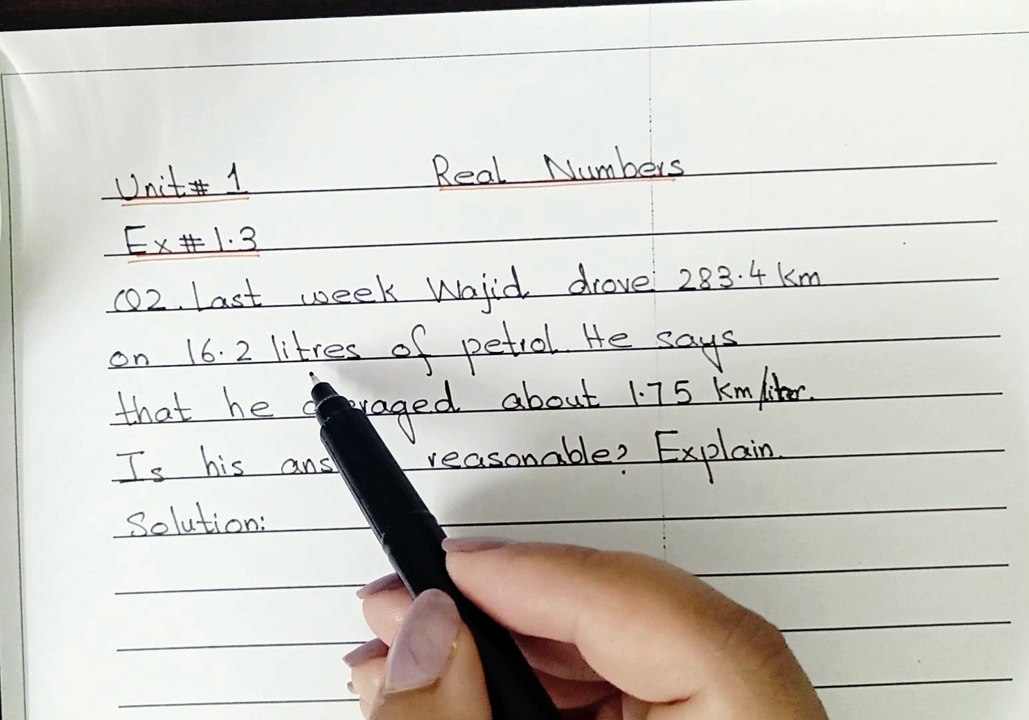 Unit# 1 Real Numbers
Ex # 1.3
Q2. Last week Wajid drove 283.4 km
on 16.2 litres of petrol. He says
that he averaged about 1.75 km/liter.
Is his ans reasonable? Explain.
Solution: